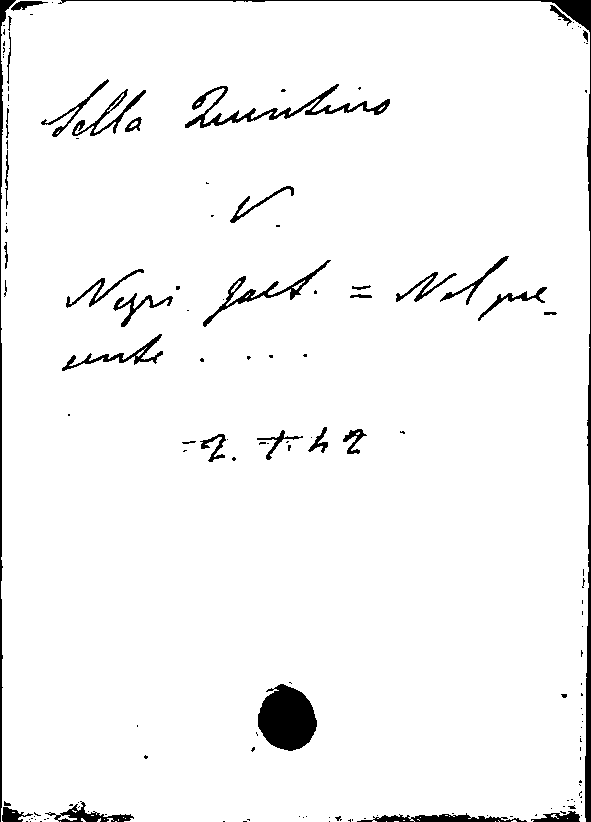 Sella Quintino
V.
Negri Gaet. = Nel pre-
sente . . . .